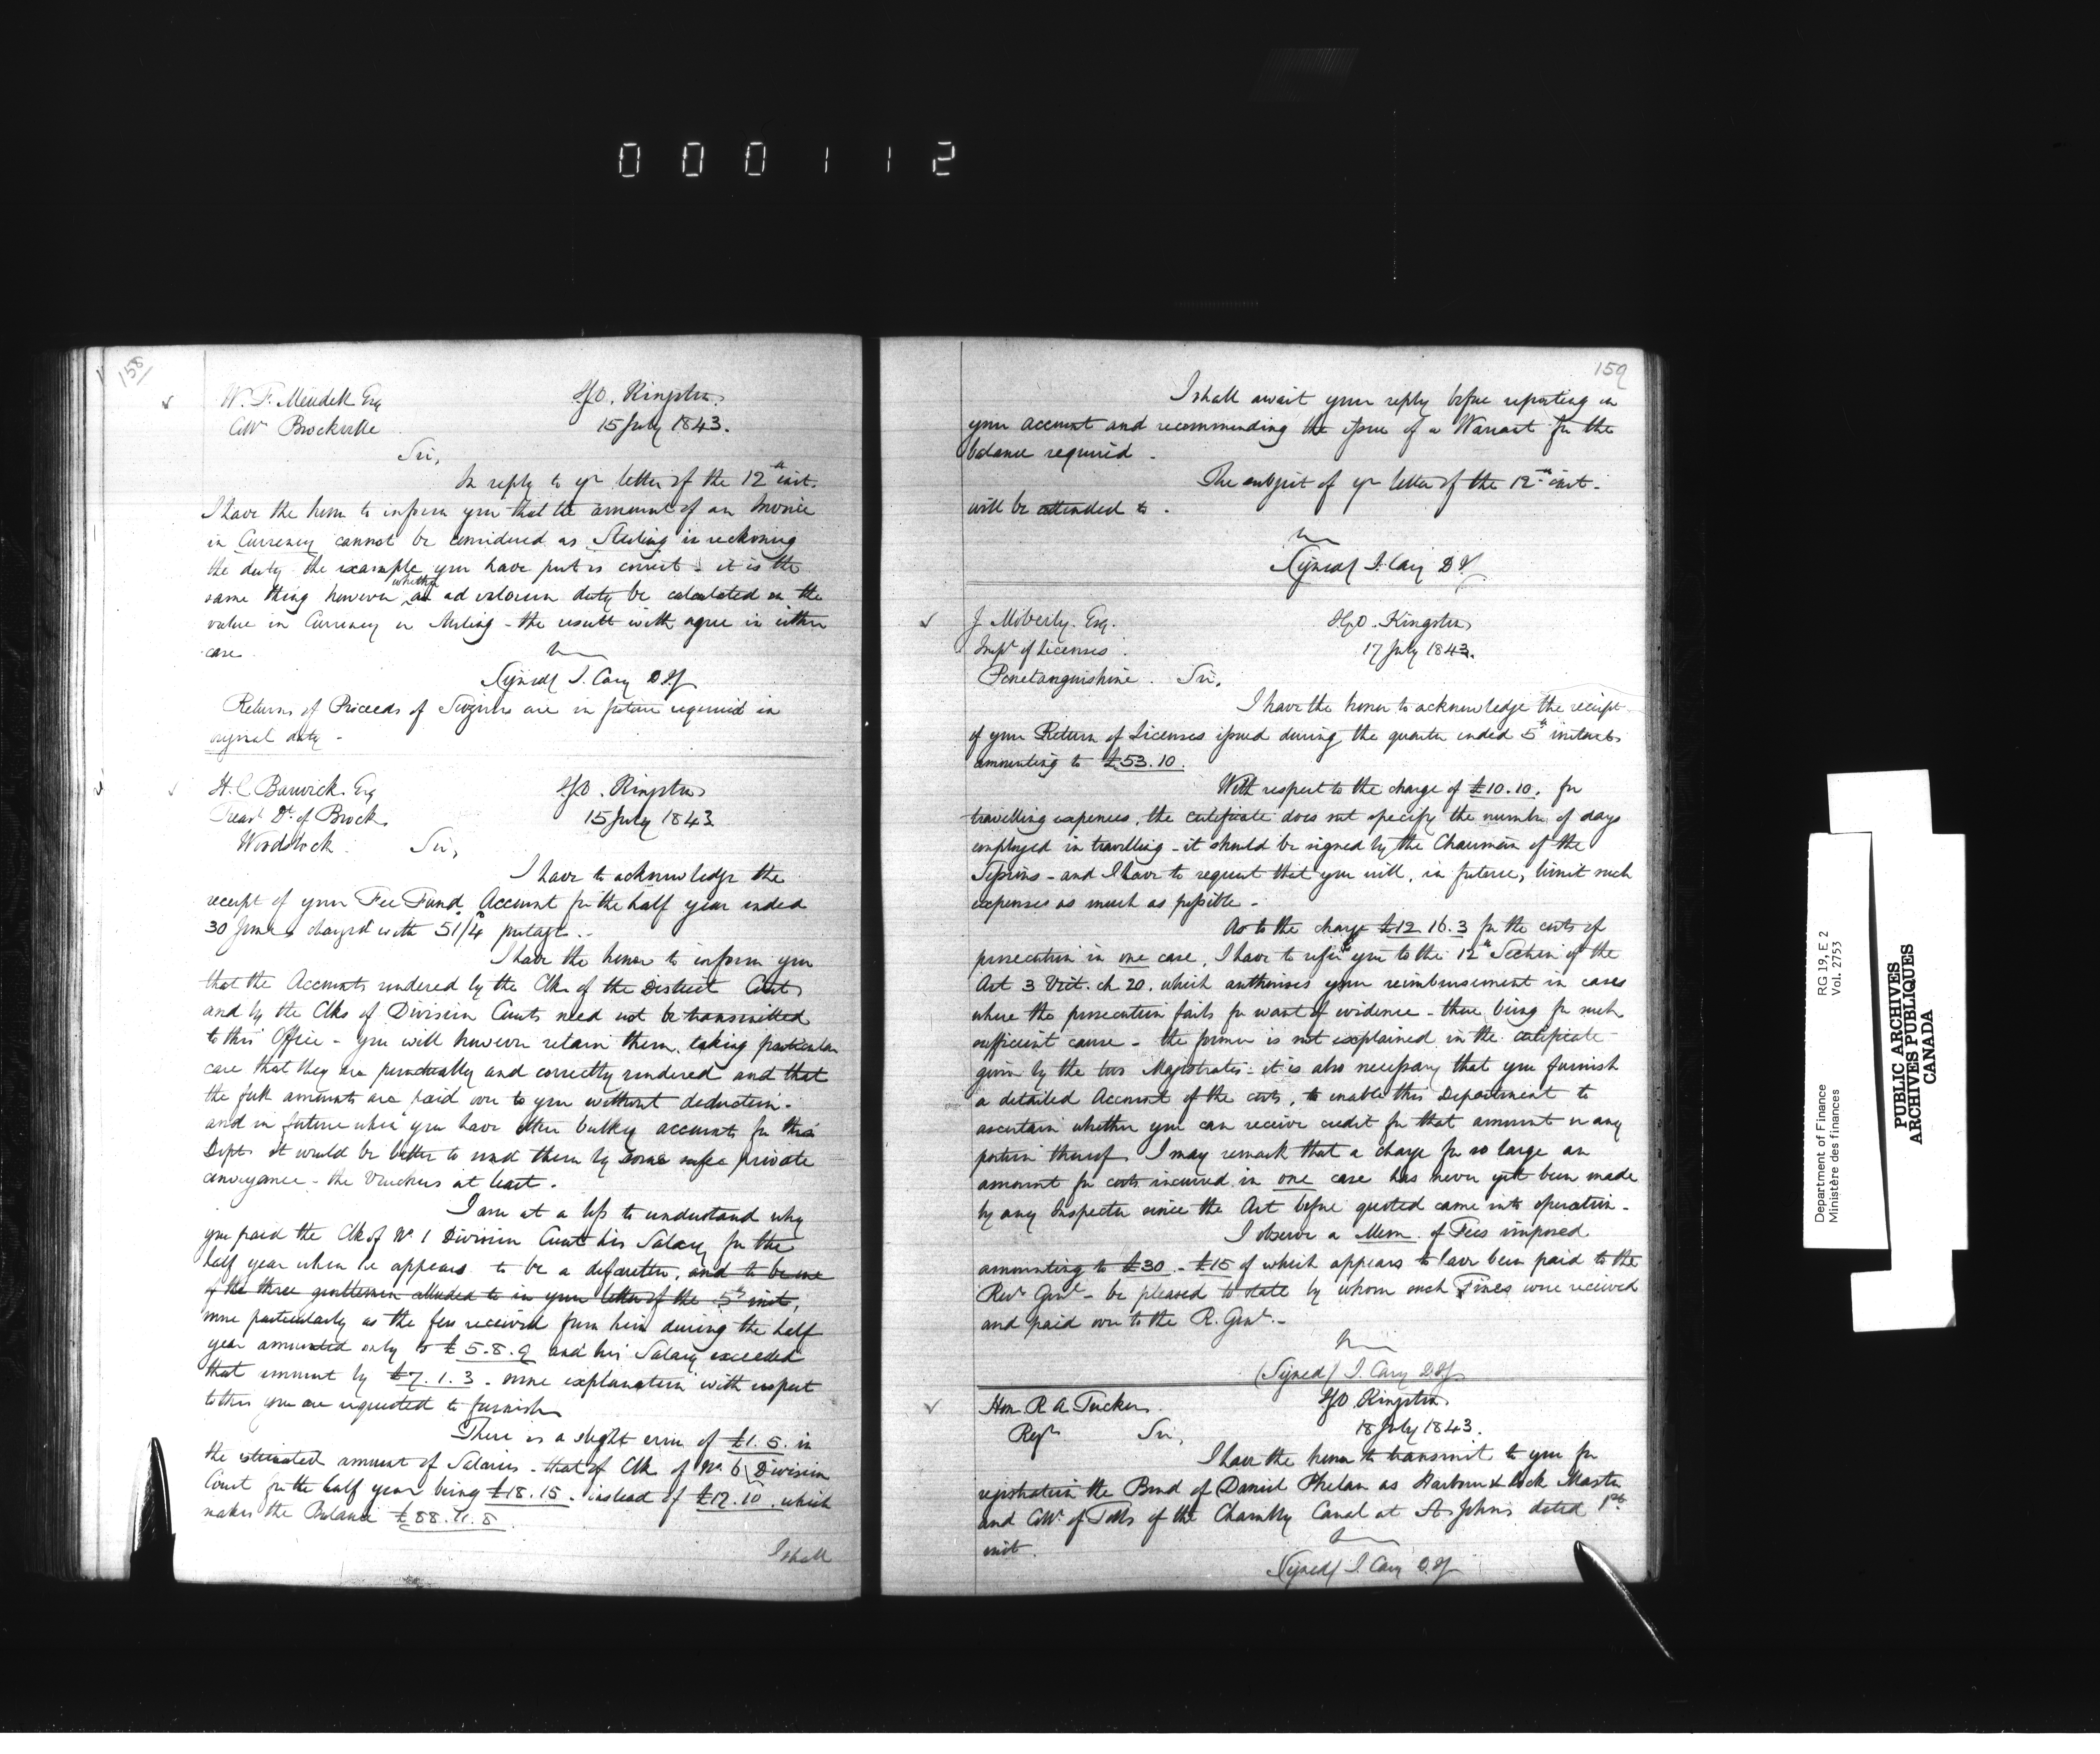 000112
158
W. F. Meudell Esq
Collr Brockville
I.G.O. Kingston
15 July 1843.
Sir,
In reply to yr letter of the 12th inst.
I have the honor to inform you that the amount of an Invoice
in Currency cannot be considered as Sterling in reckoning
the duty. the example you have put is correct. it is the
same thing however whether an ad valorem duty be calculated on the
value in Currency or Sterling - the result with agree in either
case.
Signed J. Cary D.I.G.
Returns of Proceeds of Seizures are in future required in
original only -
H. C. Barwick. Esq
Treasr Dt. of Brock
Woodstock
I.G.O. Kingston
15 July 1843
Sir,
I have to acknowledge the
receipt of your Fee Fund Account for the half year ended
30 June, charged with 5s/4d postage. -
I have the honor to inform you
that the Accounts rendered by the Clk of the District Court
and by the Clks of Division Courts need not be transmitted
to this Office - you will however retain them, taking particular
care that they are punctually and correctly rendered and that
the full amounts are paid over to you without deduction. -
and in future when you have other bulky accounts for this
Dept. it would be better to send them by some safe private
conveyance - the Vouchers at least.
I am at a loss to understand why
you paid the Clk of No 1 Division Court his Salary for the
half year when he appears to be a defaulter, and to be one
of the three gentlemen alluded to in your letter of the 5th inst,
more particularly as the fees received from him during the half
year amounted only to £5.8.9 and his Salary exceeded
that amount by £7.1.3 - some explanation with respect
to this you are requested to furnish
There is a slight error of £1.5. in
the estimated amount of Salaries - that of Clk of No. 6 Division
Court for the half year being £18.15. instead of £17.10. which
makes the Balance £88.11.8
I shall
159
I shall await your reply before reporting on
your account and recommending the issue of a Warrant for the
balance required.
The subject of yr letter of the 12th inst.
will be attended to.
Signed J. Cary D.I.G.
J. Moberly. Esq.
Inspr of Licenses.
Penetanguishine.
I.G.O. Kingston
17 July 1843.
Sir,
I have the honor to acknowledge the receipt
of your Return of Licenses issued during the quarter ended 5th instant
amounting to £53.10.
With respect to the charge of £10.10. for
travelling expenses, the certificate does not specify the number of days
employed in travelling - it should be signed by the Chairman of the
Sessions - and I have to request that you will, in future, limit such
expenses as much as possible -
As to the charge £12.16.3 for the costs of
prosecution in one case, I have to refer you to the 12th Section of the
Act 3 Vict. ch 20. which authorises your reimbursement in cases
where the prosecution fails for want of evidence - there being for such
sufficient cause - the former is not explained in the certificate
given by the two Magistrates - it is also necessary that you furnish
a detailed Account of the costs, to enable this Department to
ascertain whether you can receive credit for that amount or any
portion thereof. I may remark that a charge for so large an
amount for costs incurred in one case has never yet been made
by any Inspector since the Act before quoted came into operation -
I observe a Mem. of Fees imposed
amounting to £30. - £15 of which appears to have been paid to the
Recr Genl - be pleased to state by whom such Fines were received
and paid over to the R. Genl. -
(Signed) J. Cary D.I.G.
Hon. R A Tucker.
Regr
I.G.O Kingston
18 July 1843.
Sir,
I have the honor to transmit to you for
registration the Bond of Daniel Phelan as Harbour & Lock Master
and Collr of Tolls of the Chambly Canal at St Johns dated 1st
inst.
Signed J. Cary D.I.G.
Department of Finance
Ministère des finances
RG 19, E 2
Vol. 2753
PUBLIC ARCHIVES
ARCHIVES PUBLIQUES
CANADA